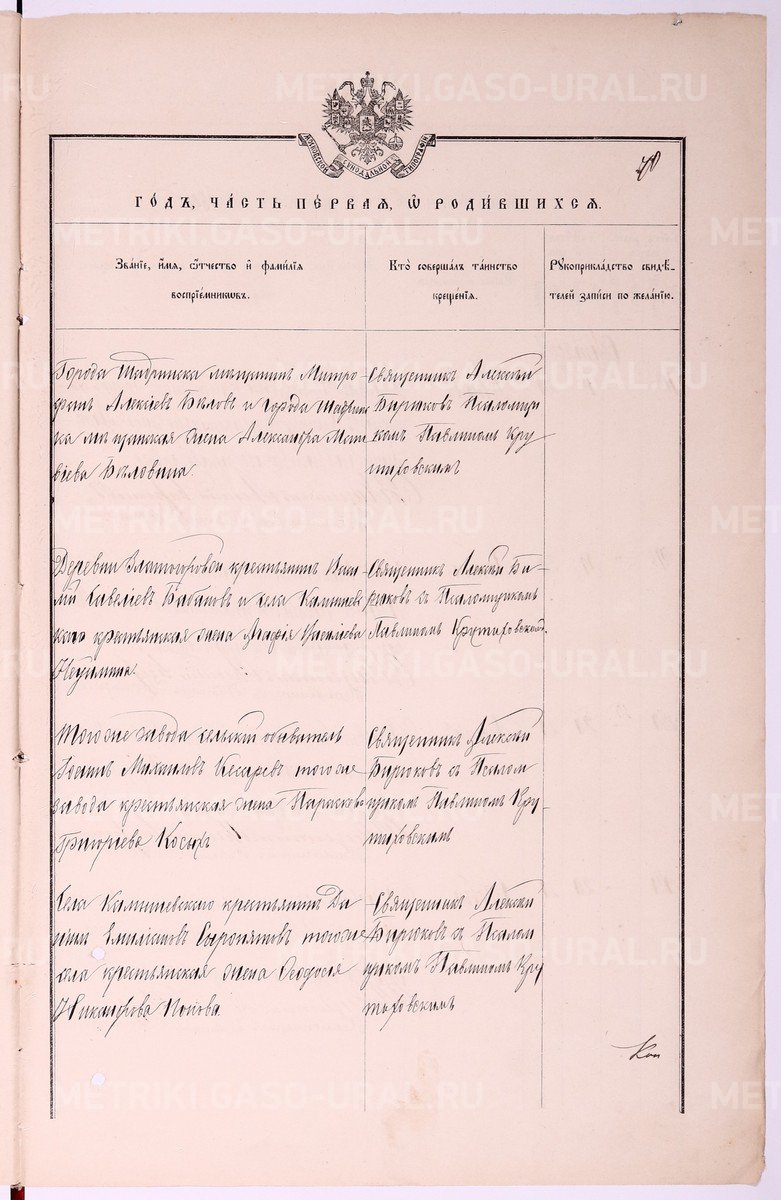 МОСКОВСКОЙ СѴНОДАЛЬНОЙ ТИПОГРАФІИ
ГО́ДЪ, ЧА́СТЬ ПЕ́РВАЯ, Ѽ РОДИ́ВШИХСѦ.
Зва́нїе, и҆́мѧ, ѻ҆́тчество и҆ фами́лїѧ
воспрїе́мникѡвъ.
Кто̀ соверша́лъ та́инство
креще́нїѧ.
Рꙋкоприкла́дство свидѣ́-
телей за́писи по жела́нїю.
Города Шадринска мѣщанинъ Митро
фанъ Алексіевъ Бѣловъ и города Шадрин
ка мѣщанская жена Александра Мат
віева Бѣловина.
Священникъ Алексѣй
Бирюковъ Псаломщи
комъ Павлиномъ Кру
тиховскимъ
Деревни Златогоровой крестьянинъ
Савеліевъ Бабановъ и села Камышев
скаго крестьянская жена Агафія Василіева
Священникъ Алексѣй Би-
рюковъ съ Псаломщикомъ
Павлиномъ Крутиховскимъ
Того же завода сельскій обыватель
Іоаннъ Михаиловъ Кесаревъ того же
завода крестьянская жена Параскева
Григоріева Косыхъ
Священникъ Алексѣй
Бирюковъ съ Псалом
щикомъ Павлиномъ Кру-
тиховскимъ
Села Камышевскаго крестьянинъ Да
ніилъ Емиліановъ Сыропятовъ того же
села крестьянская жена Ѳеодосія
Никанорова Попова.
Священникъ Алексѣй
Бирюковъ съ Псалом
щикомъ Павлиномъ Кру
тиховскимъ
METRIKI.GASO-URAL.RU